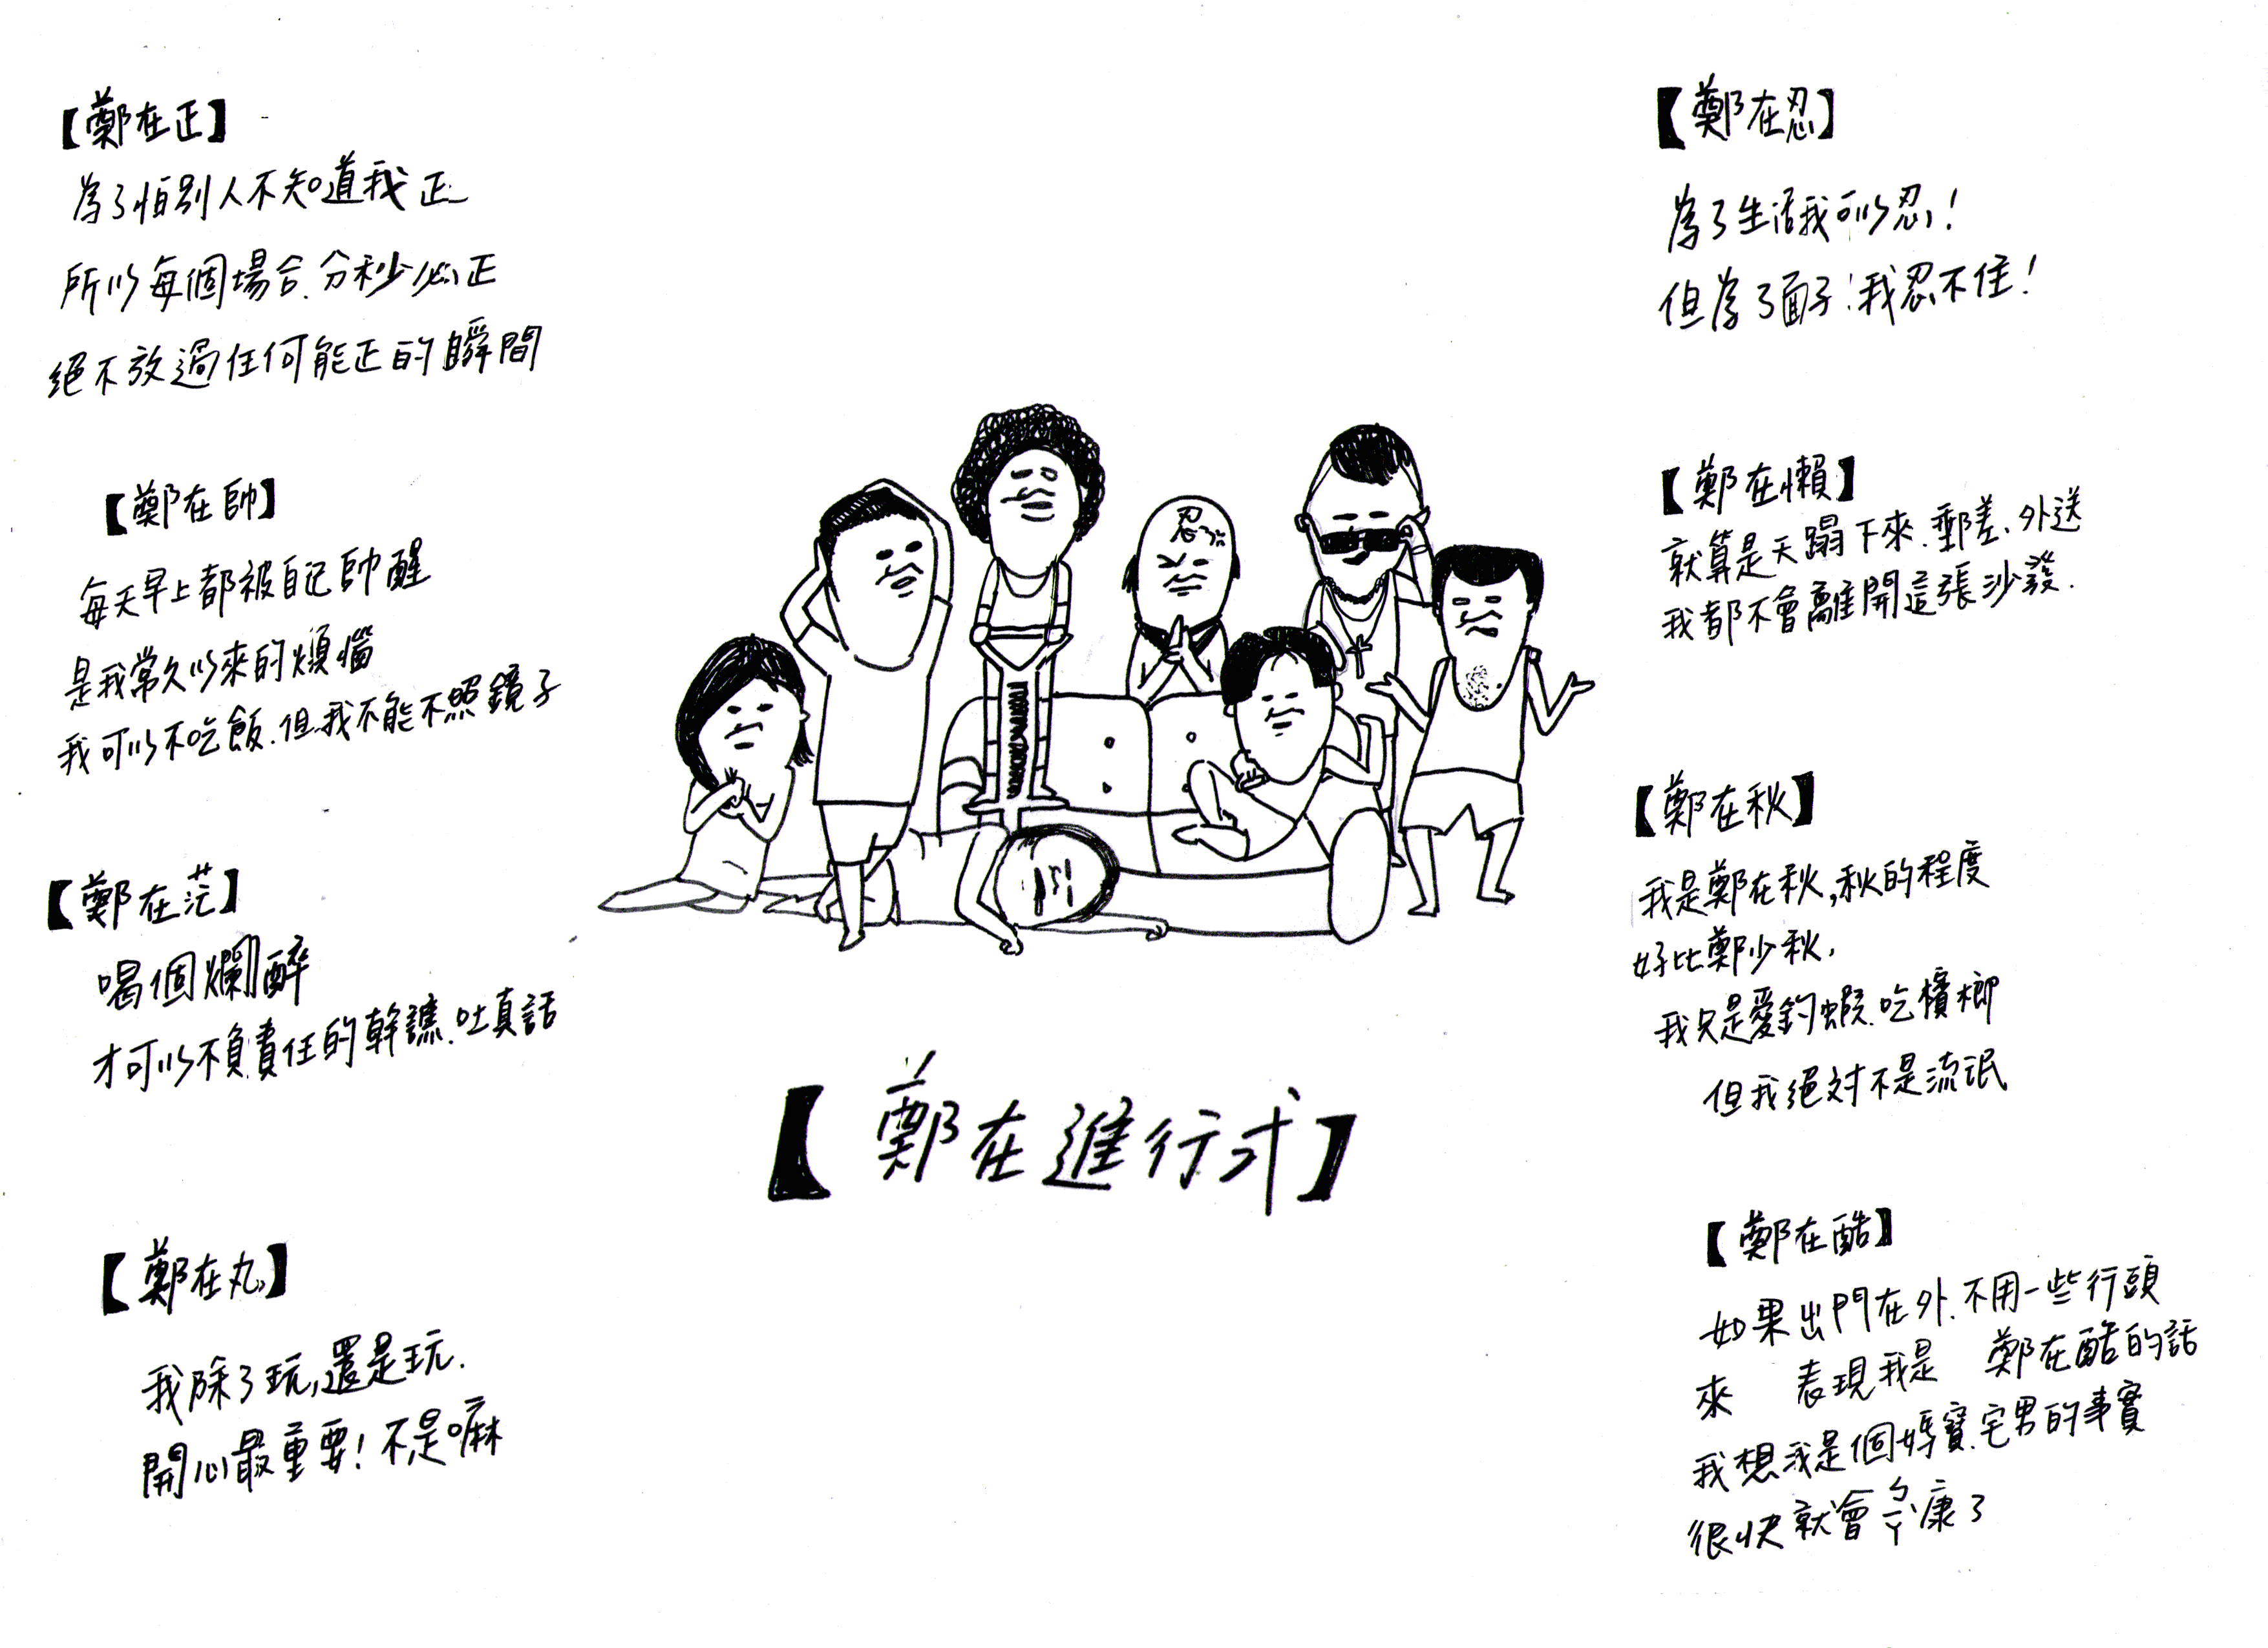 【鄭在正】
為了怕別人不知道我正
所以每個場合、分秒必正
絕不放過任何能正的瞬間
【鄭在帥】
每天早上都被自己帥醒
是我常久以來的煩惱
我可以不吃飯、但我不能不照鏡子
【鄭在茫】
喝個爛醉
才可以不負責任的幹譙、吐真話
【鄭在丸】
我除了玩,還是玩.
開心最重要!不是嘛
忍
【鄭在進行式】
【鄭在忍】
為了生活我可以忍!
但為了面子!我忍不住!
【鄭在懶】
就算是天蹋下來、郵差、外送
我都不會離開這張沙發.
【鄭在秋】
我是鄭在秋,秋的程度
好比鄭少秋,
我只是愛釣蝦、吃檳榔
但我絕对不是流氓
【鄭在酷】
如果出門在外、不用一些行頭
來 表現我是 鄭在酷的話
我想我是個媽寶、宅男的事實
很快就會ㄅㄧㄚˋ康了